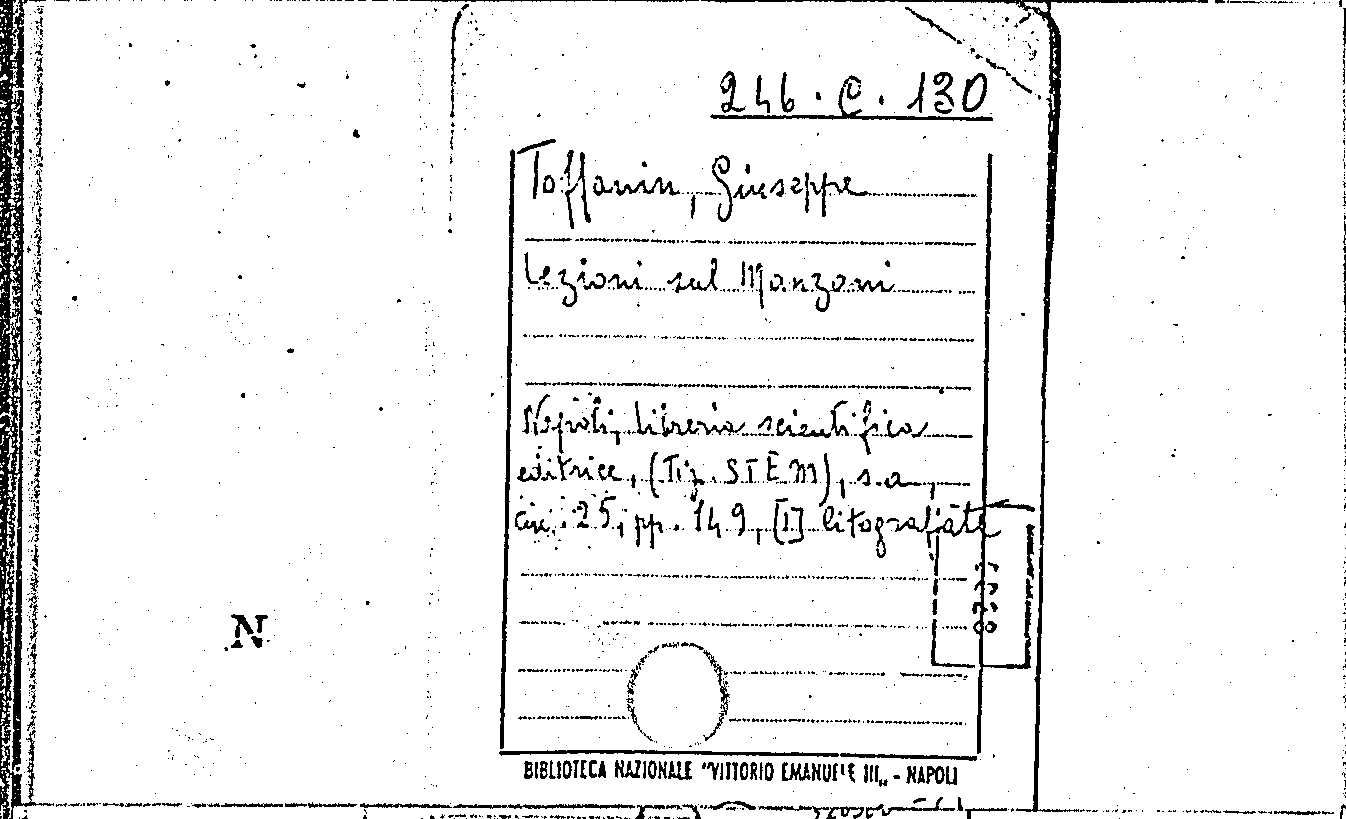 246.C.130
Toffanin, Giuseppe
Lezioni sul Manzoni
Napoli, libreria scientifica
editrice, (Tip. STEM), s.a.,
cm. 25, pp. 149, [1] litografate
N
BIBLIOTECA NAZIONALE "VITTORIO EMANUELE III„ - NAPOLI